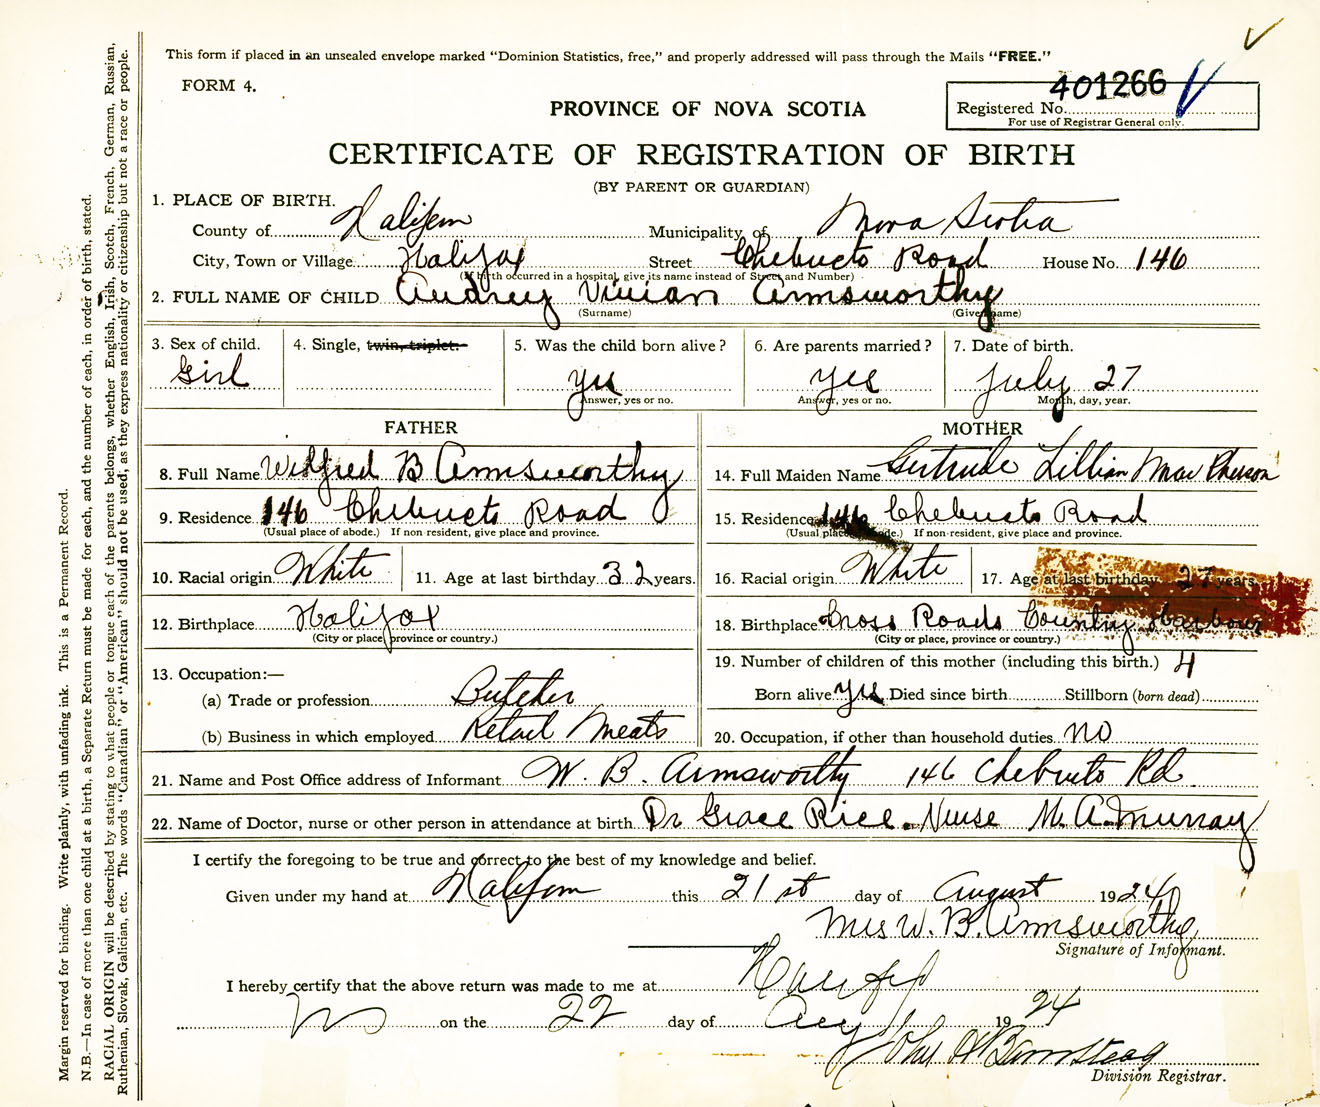 This form if placed in an unsealed envelope marked "Dominion Statistics, free," and properly addressed will pass through the Mails "FREE."
FORM 4.
401266
Registered No.
For use of Registrar General only.
PROVINCE OF NOVA SCOTIA
CERTIFICATE OF REGISTRATION OF BIRTH
(BY PARENT OR GUARDIAN)
1. PLACE OF BIRTH.
County of Halifax Municipality of Nova Scotia
City, Town or Village Halifax Street Chebucto Road House No. 146
(If birth occurred in a hospital, give its name instead of Street and Number)
2. FULL NAME OF CHILD Audrey Vivian Armsworthy
(Surname) (Given name)
3. Sex of child. 4. Single, twin, triplet. 5. Was the child born alive? 6. Are parents married? 7. Date of birth.
Girl yes yes July 27
Answer, yes or no. Answer, yes or no. Month, day, year.
FATHER
8. Full Name Wilfred B Armsworthy
9. Residence 146 Chebucto Road
(Usual place of abode.) If non-resident, give place and province.
10. Racial origin White 11. Age at last birthday 32 years.
12. Birthplace Halifax
(City or place, province or country.)
13. Occupation:—
(a) Trade or profession Butcher
(b) Business in which employed Retail Meats
MOTHER
14. Full Maiden Name Gertrude Lillian MacPherson
15. Residence 146 Chebucto Road
(Usual place of abode.) If non-resident, give place and province.
16. Racial origin White 17. Age at last birthday 27 years.
18. Birthplace Cross Roads Country Harbour
(City or place, province or country.)
19. Number of children of this mother (including this birth.) 4
Born alive yes Died since birth Stillborn (born dead)
20. Occupation, if other than household duties no
21. Name and Post Office address of Informant W. B. Armsworthy 146 Chebucto Rd.
22. Name of Doctor, nurse or other person in attendance at birth Dr Grace Rice. Nurse M. A. Murray
I certify the foregoing to be true and correct to the best of my knowledge and belief.
Given under my hand at Halifax this 21st day of August 1924
Mrs W. B. Armsworthy
Signature of Informant.
I hereby certify that the above return was made to me at Halifax
NS on the 22 day of Aug 1924
John A
Division Registrar.
Margin reserved for binding. Write plainly, with unfading ink. This is a Permanent Record.
N.B.—In case of more than one child at a birth, a Separate Return must be made for each, and the number of each, in order of birth, stated.
RACIAL ORIGIN will be described by stating to what people or tongue each of the parents belongs, whether English, Irish, Scotch, French, German, Russian,
Ruthenian, Slovak, Galician, etc. The words "Canadian" or "American" should not be used, as they express nationality or citizenship but not a race or people.